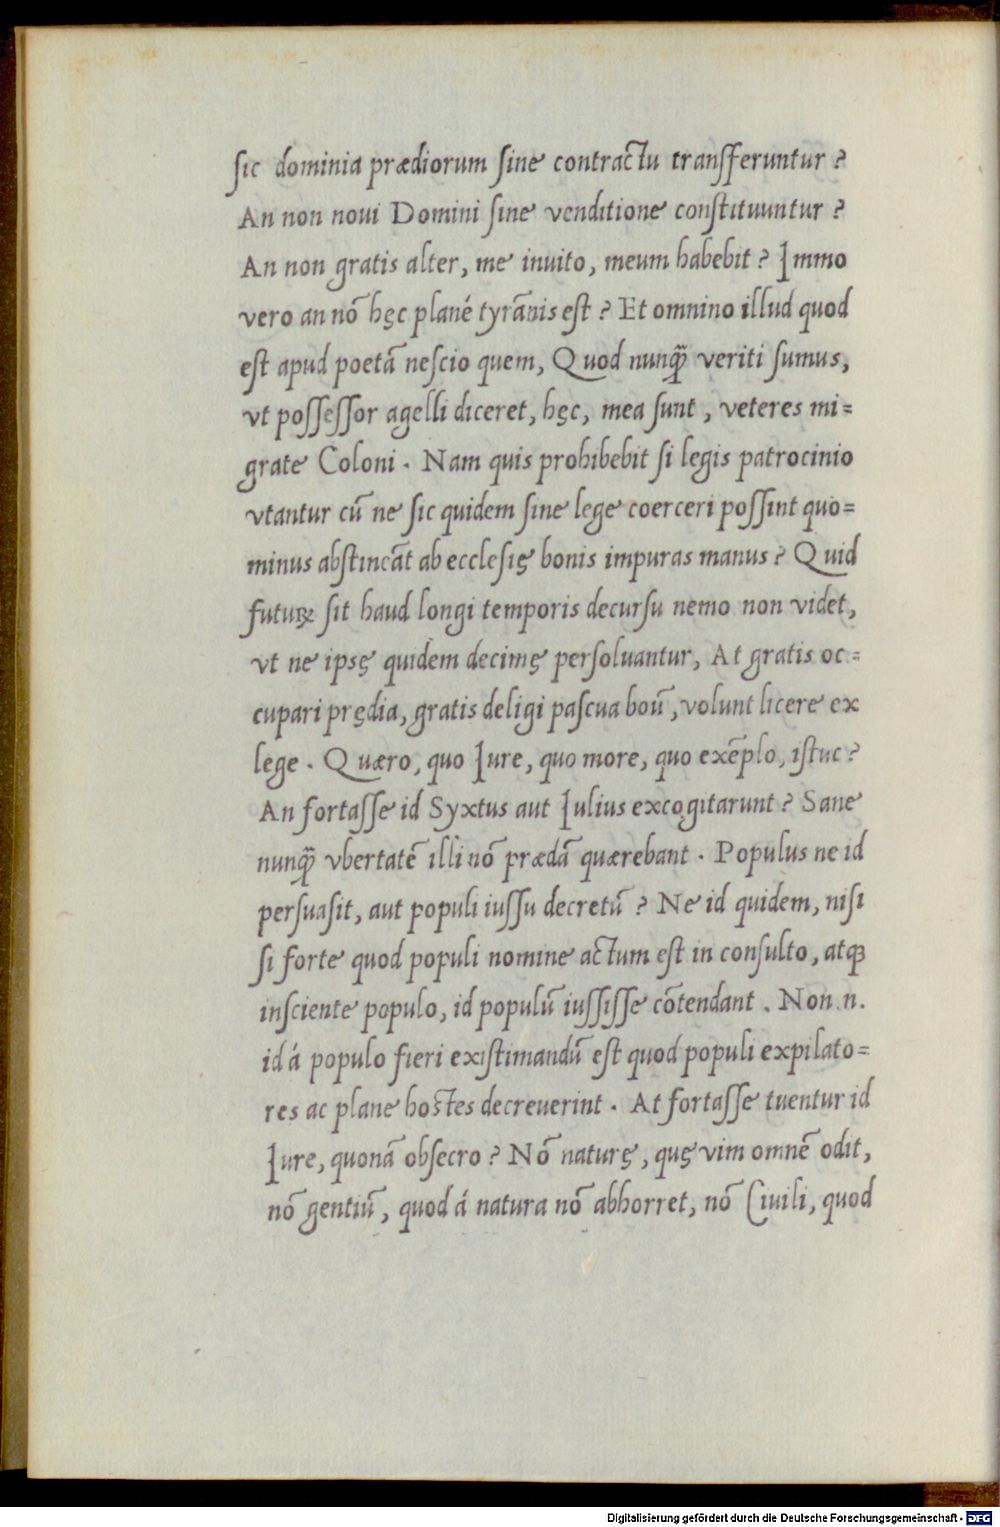 ſic dominia prædiorum ſine contractu transſferuntur ?
An non noui Domini ſine venditione conſtituuntur ?
An non gratis alter, me inuito, meum habebit ? Immo
vero an nō hęc plané tyrānis eſt ? Et omnino illud quod
eſt apud poetā neſcio quem, Quod nunꝗ̃ veriti ſumus,
vt poſſeſſor agelli diceret, hęc, mea ſunt , veteres mi=
grate Coloni . Nam quis prohibebit ſi legis patrocinio
vtantur cū ne ſic quidem ſine lege coerceri poſſint quo=
minus abſtineāt ab eccleſię bonis impuras manus ? Quid
futuꝝ ſit haud longi temporis decurſu nemo non videt,
vt ne ipsę quidem decimę perſoluantur, At gratis oc=
cupari prędia, gratis deligi paſcua boū , volunt licere ex
lege . Quæro, quo Iure, quo more, quo exēplo, iſtuc ?
An fortaſſe id Syxtus aut Iulius excogitarunt ? Sane
nunꝗ̃ vbertatē illi nō prædā quærebant . Populus ne id
perſuaſit, aut populi iuſſu decretū ? Ne id quidem, niſi
ſi forte quod populi nomine actum eſt in conſulto, atqꝫ
inſciente populo, id populū iuſſiſſe cōtendant . Non n.
id á populo fieri exiſtimandū eſt quod populi expilato=
res ac plane hoſtes decreuerint . At fortaſſe tuentur id
Iure, quonā obſecro ? Nō naturę, quę vim omnē odit,
nō gentiū, quod á natura nō abhorret, nō Ciuili, quod
Digitalisierung gefördert durch die Deutsche Forschungsgemeinschaft - DFG